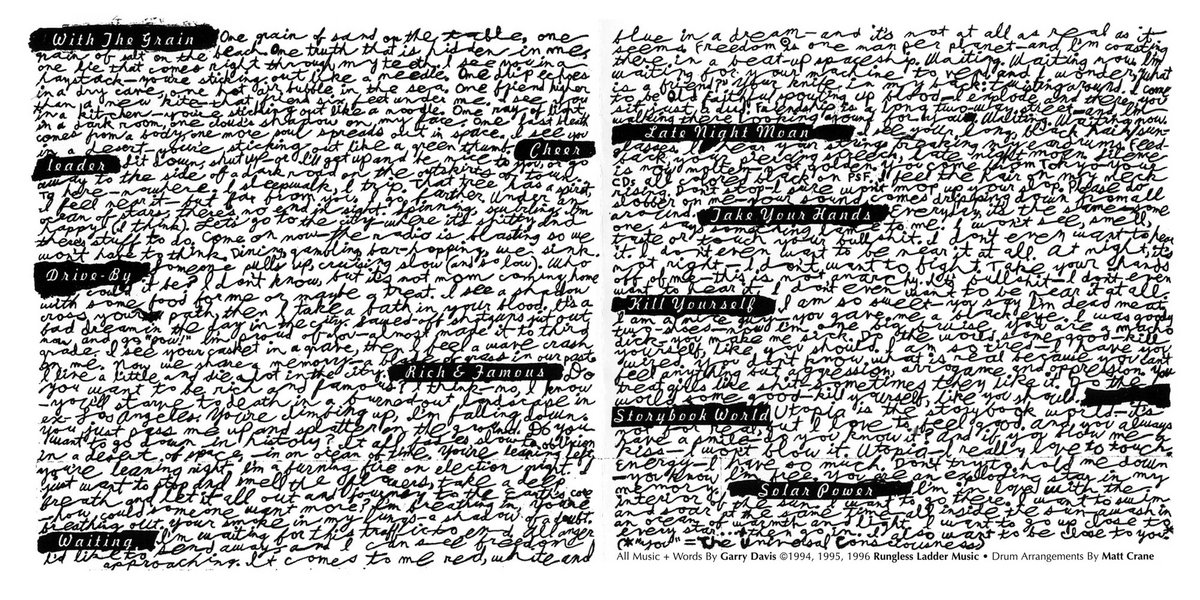 With The Grain One grain of sand on the table, one
grain of salt on the beach. One truth that is hidden in me,
one lie that comes right through my teeth. I see you in a
haystack—you're sticking out like a needle. One drip echoes
in a dry cave, one hot air bubble in the sea. One friend higher
than a new kite—that friend shrieked under me. I see you
in a kitchen—you're sticking out like a noodle. One ray of light
in a dark room, one cloud's shadow on my face. One last breath
comes from a body, one more soul spreads out in space. I see you
in a desert—you're sticking out like a green thumb. Cheer
leader Sit down, shut up—or I'll get up and be nice to you, or go
away to the side of a dark road on the outskirts of town.
I'm here—nowhere. I sleepwalk, I trip. That tree has a spirit.
I feel near it—but far from you. I go farther under an
ocean of stars, there's no end in sight. Spinning, swirling, I'm
happy (I think). Let's go to the city—where it's pretty and
there's stuff to do. Come on now—the radio is blasting so we
won't have to think. Dining, gambling, bar-hopping, we sink.
Drive-By Someone pulls up, cruising slow (and so low). Who
could it be? I don't know, but it's not mom coming home
with some food for me or maybe a treat. I see a shadow
cross your path, then I take a bath in your blood. It's a
bad dream in the day in the city. Sawed-off shotguns just out
now and go "pow!" I'm proud of you—you almost made it to third
grade. I see your casket in a grave, then I feel a wave crash
on me. Now we share a memory—of grass in our past
I like a little and die a lot in the city. Rich & Famous Do
you want to be rich and famous? I think—no, I know
—you'll starve to death in a burned out landscape in
Los Angeles. You're climbing up, I'm falling down.
You just pass me up and splatter on the ground. Do you
want to go down in history? It all fades slow to oblivion
in a desert of space—in an ocean of time. You're leaning left,
you're leaning right, I'm a burning fire on election night. I
just want to stop and smell the flowers, take a deep
breath and let it all out and journey to the Earth's core
How could someone want more? I'm breathing in, you're
breathing out. Your smoke in my lungs—a shadow of a doubt.
Waiting I'm waiting for this traffic to end. Danger
I'd like to send away—and I can see freedom
approaching. It comes to me red, white and
blue in a dream—and it's not at all as real as it
seems. Freedom is one man per planet—and I'm coasting
there in a beat-up spaceship. Waiting. Waiting now. I'm
waiting for your machine to vend, and I wonder, "what
is a friend?" Your knife in my back, twisting around. I come
to be Old Faithful, spouting up blood—I explode and there you
sit, just a dud. Friendship is a long two-way street—and I'm
walking there looking around for you. Waiting. Waiting now.
Late Night Moan I see your long, black hair/sun-
glasses. I hear your strings freaking my eardrums. Feed-
back, your piercing speech. Late night moan theme
is now mine—I understand. You come from Tokyo—your
CDs are all black on black on PSF. I feel the hair on my neck
rising. Don't stop—I sure won't mop up your slop. Please do
slobber on me—your sound comes dripping down from all
around. Take Your Hands Everyday it's the same—some
one says something lame to me. I won't see, smell,
taste or touch your bullshit. I don't even want to hear
it. I don't even want to be near it at all. At night, it's
not right—I don't want to fight. Take your hands
off of me—this is not anarchy. It's bullshit—I don't even
want to hear it. I don't even want to be near it at all.
Kill Yourself I am so sweet—you say I'm dead meat.
I am a nice guy—you gave me a black eye. I was goody
two-shoes—now I'm one big bruise. You are a macho
dick—you make me sick. Do the world some good—kill
yourself, like you should. I am so tired—I have you
wired. You don't know what is real because you don't
feel anything but aggression, arrogance and oppression. You
treat girls like shit—sometimes they like it. Do the
world some good—kill yourself, like you should.
Storybook World Utopia is the storybook world—it's
not for real, but I love to feel good, and you always
have a smile—do you know it? And if you blow me a
kiss—I won't blow it. Utopia—I really love to touch.
Energy—I have so much. Don't try to hold me down
—you know I'll break free. You are an exploding star in my
memory. Solar Power I'm in love with the
interior of the sun, I want to go there. I want to swim
and soar at the same time all inside the sun—awash in
an ocean of warmth and light. I want to go up close to
every star...then go inside. I want to be close to you*
(*"you" = the universal consciousness)
All Music + Words By Garry Davis ©1994, 1995, 1996 Rungless Ladder Music • Drum Arrangements By Matt Crane